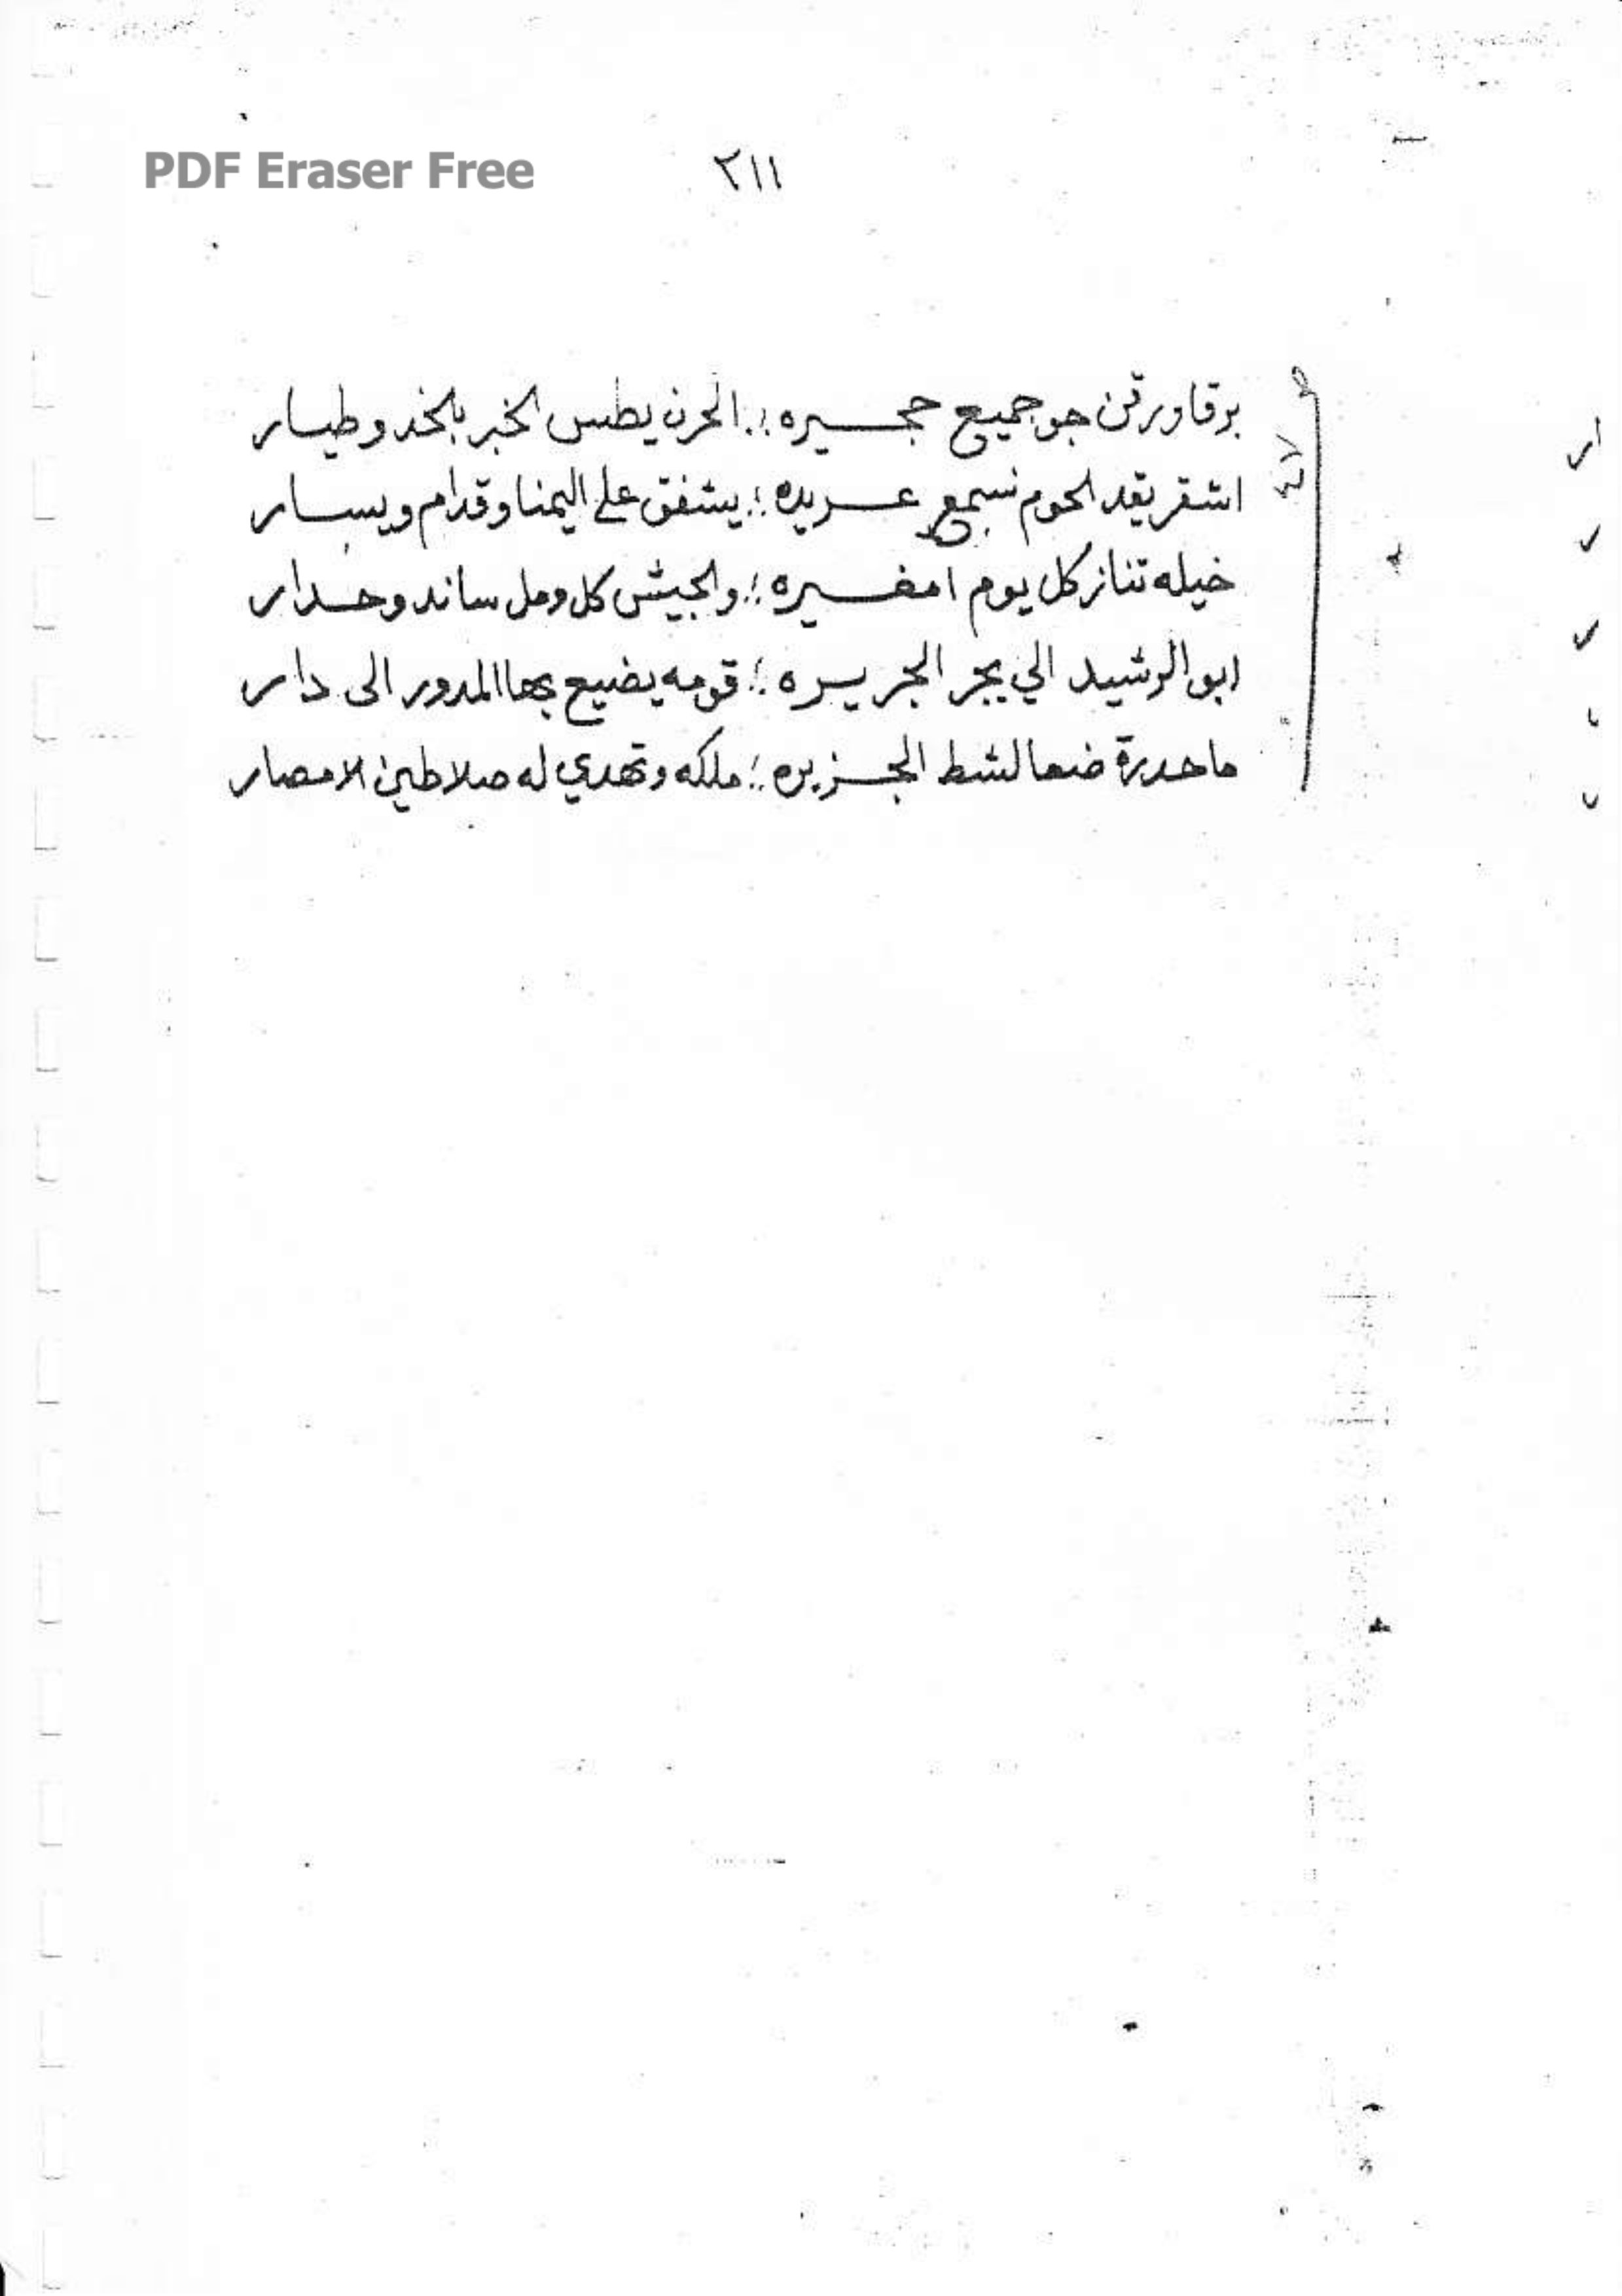 PDF Eraser Free
٢١١
برقا ورقن جو جميع حجـــيره ؛ الحرن يطس الخبر بلخد وطيــار
اشقر يقد الحوم نسمع عــريره ؛ يشفق على اليمنا وقدام ويســار
خيله تناز كل يوم امغــيره ؛ والجيش كل ومل ساند وحــدار
ابو الرشيد الي يجر الجريــره ؛ قومه يضيع بها المدور الى دار
ما حدرة ضنعا لشط الجــزيره ؛ ملكه وتهدي له صلاطين الامصار